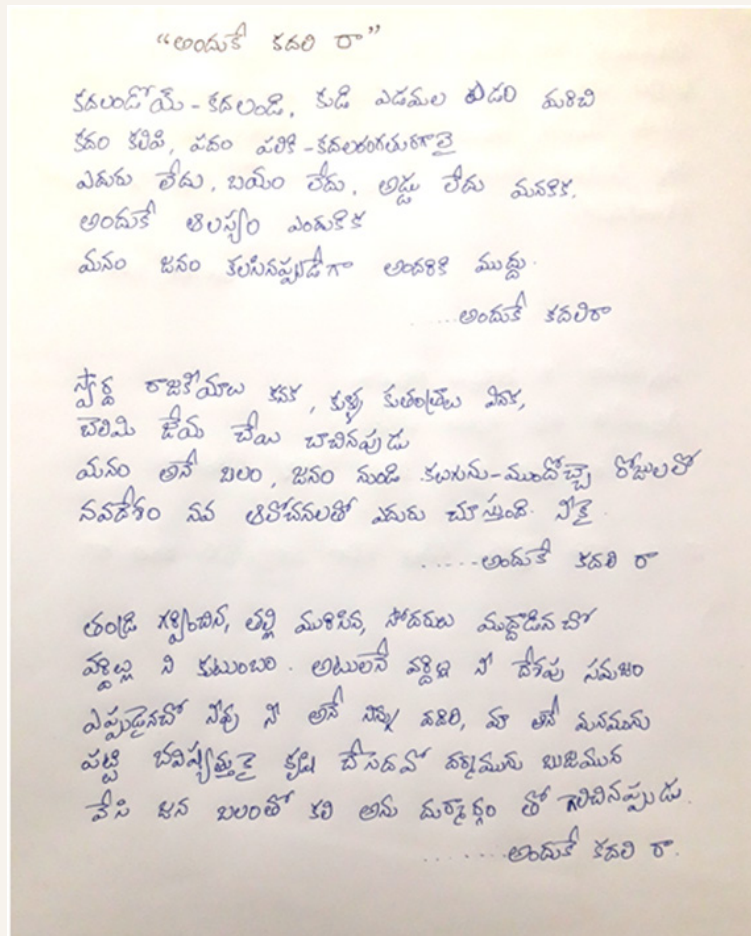 “అందుకే కదలి రా”
కదలండోయ్ - కదలండి, కుడి ఎడమల మరిచి
కదం కలిపి, పదం పలికి - కదలరంగతురగాలై
ఎదురు లేదు, బయం లేదు, అడ్డు లేదు మనకిక.
అందుకే ఆలస్యం ఎందుకిక
మనం జనం కలసినప్పుడేగా అందరికి ముద్దు.
....అందుకే కదలిరా
స్వార్ధ రాజకీయాలు కనక, కుళ్ళ కుతంత్రాలు వినక,
చెలిమి జేయ చేయి చాచినపుడు
మనం అనే బలం, జనం నుండి కలుగును - ముందొచ్చా రోజులలో
నవదేశం నవ ఆలోచనలతో ఎదురు చూస్తుంది. నీకై.
......అందుకే కదలి రా
తండ్రి గర్వించిన, తల్లి మురిసిన, సోదరులు ముద్దాడిన చో
వర్ధిల్లు ని కుటుంబం. అటులనే వర్ధిల్లు నీ దేశపు సమజం
ఎప్పుడైనచో నీవు నీ అనే నిన్ను వదిలి, మా అనే మనమును
పట్టి భవిష్యత్తుకై కృషి చేసెదవో దర్మమును బుజమున
వేసి జన బలంతో కలి అను దుర్మార్గం తో గెలిచినప్పుడు.
........అందుకే కదలి రా.